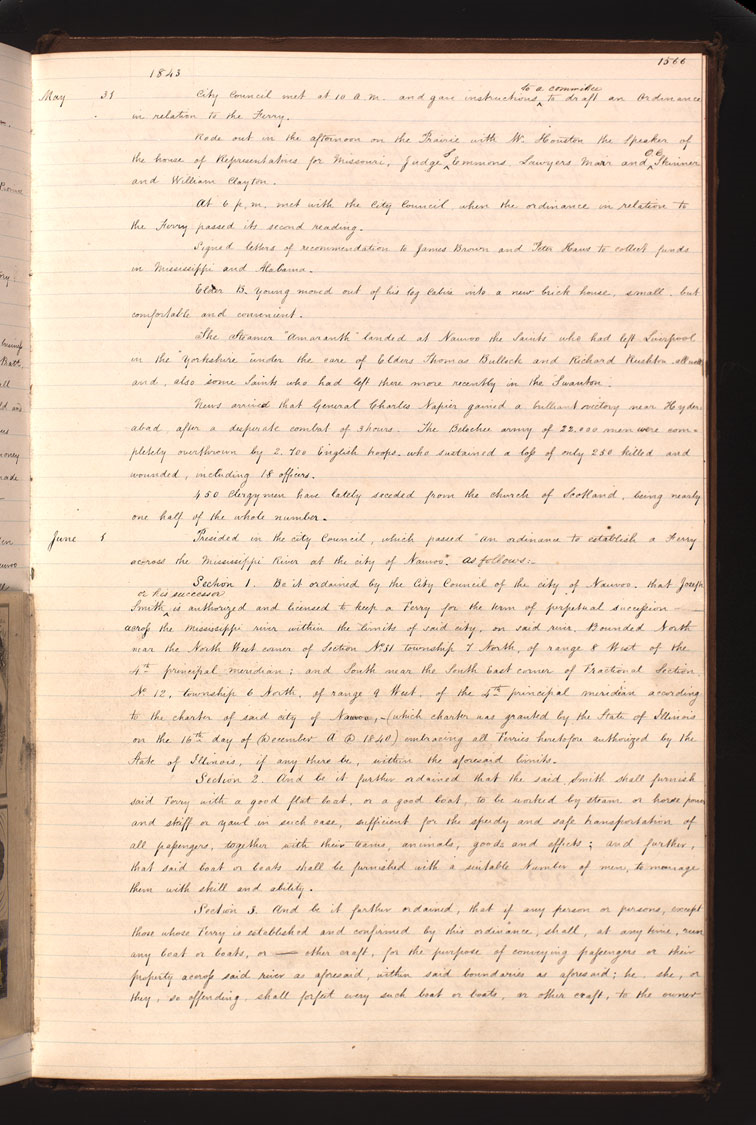 1843
1566
May 31 City Council met at 10 a.m. and gave instructions, to a committee to draft an Ordinance
in relation to the Ferry.
Rode out in the afternoon on the Prairie with Mr. Houston the Speaker of
the house of Representatives for Missouri, Judge S. Emmons, Lawyers Marr and O. C. Skinner
and William Clayton.
At 6 p.m. met with the City Council, when the ordinance in relation to
the Ferry passed its second reading.
Signed letters of recommendation to James Brown and Peter Haws to collect funds
in Mississippi and Alabama.
Elder B. Young moved out of his log cabin into a new brick house, small, but
comfortable and convenient.
The steamer "Amaranth" landed at Nauvoo the Saints who had left Liverpool
in the "Yorkshire" under the care of Elders Thomas Bullock and Richard Rushton all well
and, also some Saints who had left there more recently in the Swanton.
News arrived that General Charles Napier gained a brilliant victory near Hyder-
abad, after a desperate combat of 3 hours. The Belochee army of 22.000 men were com-
pletely overthrown by 2.700 English troops, who sustained a loss of only 250 killed and
wounded, including 18 officers.
450 Clergymen have lately seceded from the church of Scotland, being nearly
one half of the whole number.
June 1 Presided in the city Council, which passed "An ordinance to establish a Ferry
across the Mississippi River at the city of Nauvoo". as follows:-
Section 1. Be it ordained by the City Council of the city of Nauvoo, that Joseph
or his successor
Smith, is authorized and licensed to keep a Ferry for the term of perpetual succession
across the Mississippi river within the limits of said city, on said river. Bounded North
near the North West corner of Section No 31 township 7 North, of range 8 West of the
4th principal meridian; and South near the South East corner of Fractional Section
No 12, township 6 North, of range 9 West, of the 4th principal meridian according
to the charter of said city of Nauvoo,-(which charter was granted by the State of Illinois
on the 16th day of December A D 1840) embracing all Ferries heretofore authorized by the
State of Illinois, if any there be, within the aforesaid limits.
Section 2. And be it further ordained that the said Smith shall furnish
said Ferry with a good flat boat, or a good boat, to be worked by steam or horse power
and skiff or yawl in such case, sufficient for the speedy and safe transportation of
all passengers, together with their teams, animals, goods and effects; and further,
that said boat or boats shall be furnished with a suitable number of men, to manage
them with skill and ability.
Section 3. And be it further ordained, that if any person or persons, except
those whose Ferry is established and confirmed by this ordinance, shall, at any time, run
any boat or boats, or — other craft, for the purpose of conveying passengers or their
property across said river as aforesaid, within said boundaries as aforesaid; he, she, or
they, so offending, shall forfeit every such boat or boats, or other craft, to the owner